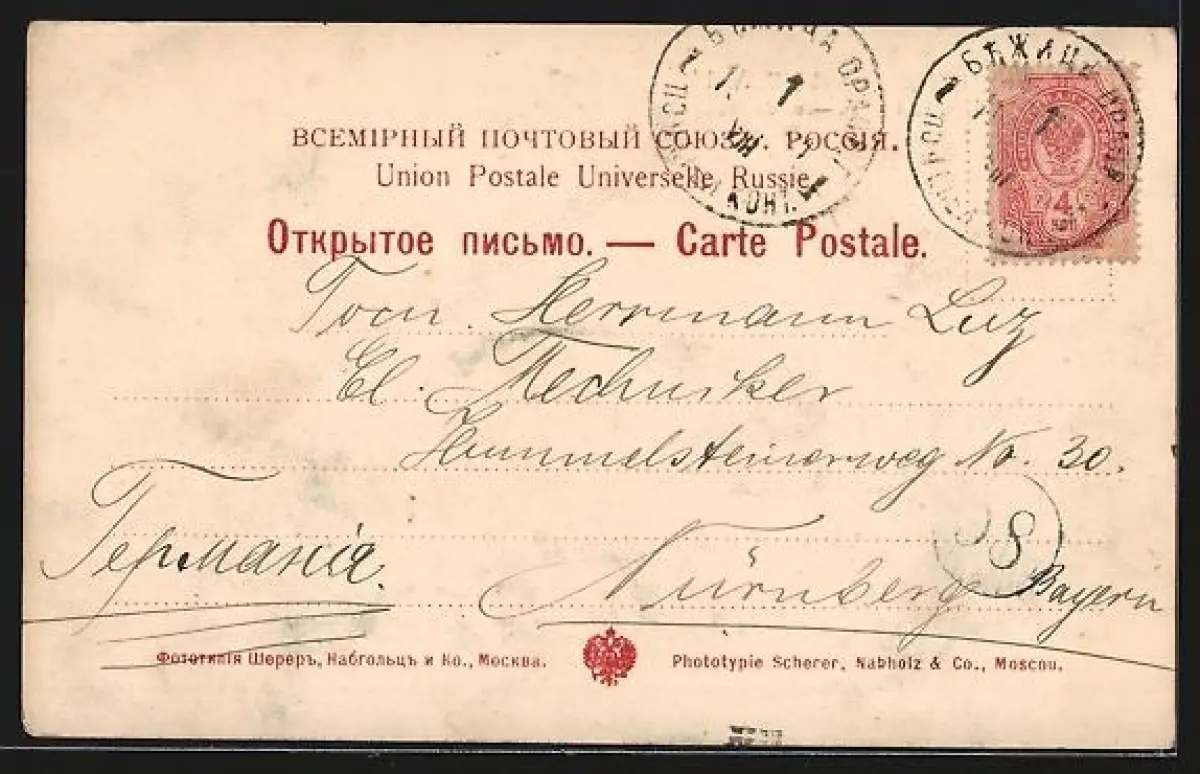 БѢЖИЦА ОРЛОВ.
1
КОНТ.
4
КОП
ВСЕМІРНЫЙ ПОЧТОВЫЙ СОЮЗЪ. РОССІЯ.
Union Postale Universelle, Russie
Открытое письмо. — Carte Postale.
Госп. Herrmann Luz
El. Mechniker
Hummelsteinerweg No. 30.
8
Германія.
Nürnberg Bayern
Фототипія Шереръ, Набгольцъ и Ко., Москва.
Phototypie Scherer, Nabholz & Co., Moscou.